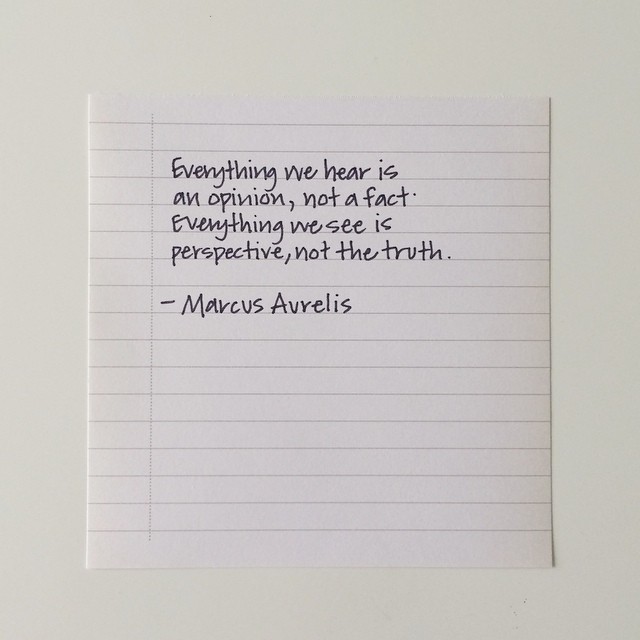 Everything we hear is
an opinion, not a fact.
Everything we see is
perspective, not the truth.
- Marcus Aurelis